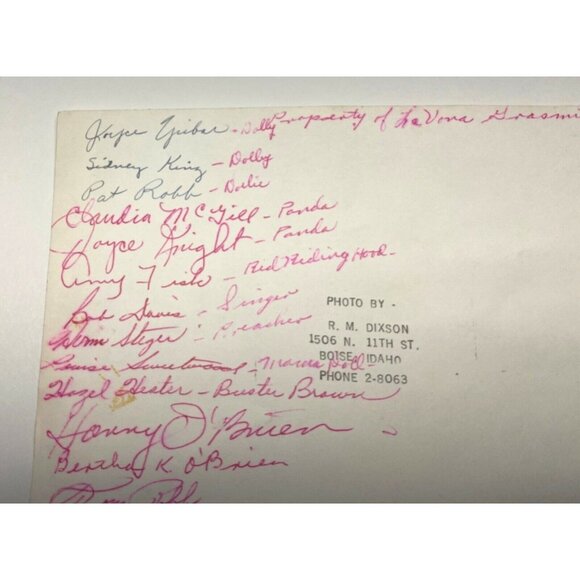 Joyce - Dolly Property of LaVona Grasmi
Sidney King - Dolly
Pat Robb - Dolie
Claudia McGill - Panda
Joyce Knight - Panda
Fisk - Red Riding Hood -
Bob Davis - Singer
Steger - Preacher
Louise Smeetwood - Mama Doll -
Hazel Hester - Buster Brown
O'Brien
Bertha K O'Brien
PHOTO BY -
R. M. DIXSON
1506 N. 11TH ST.
BOISE, IDAHO
PHONE 2-8063